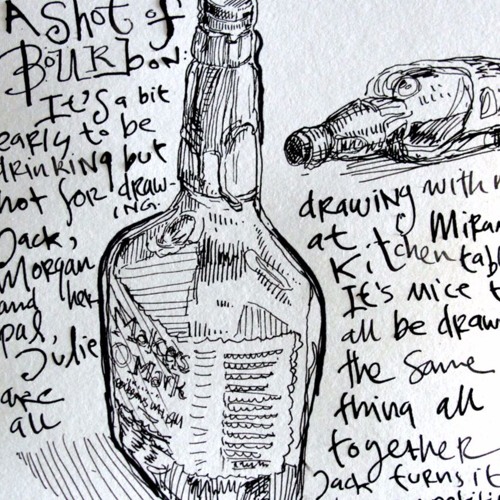 A Shot of
Bourbon:
It's a bit
early to be
drinking but
not for draw-
ing.
Jack,
Morgan
and her
pal,
Julie
are
all
Makers
Mark
drawing with
at Miran
Kitchen table
It's nice t
all be draw
the same
thing all
together
Jack turns it